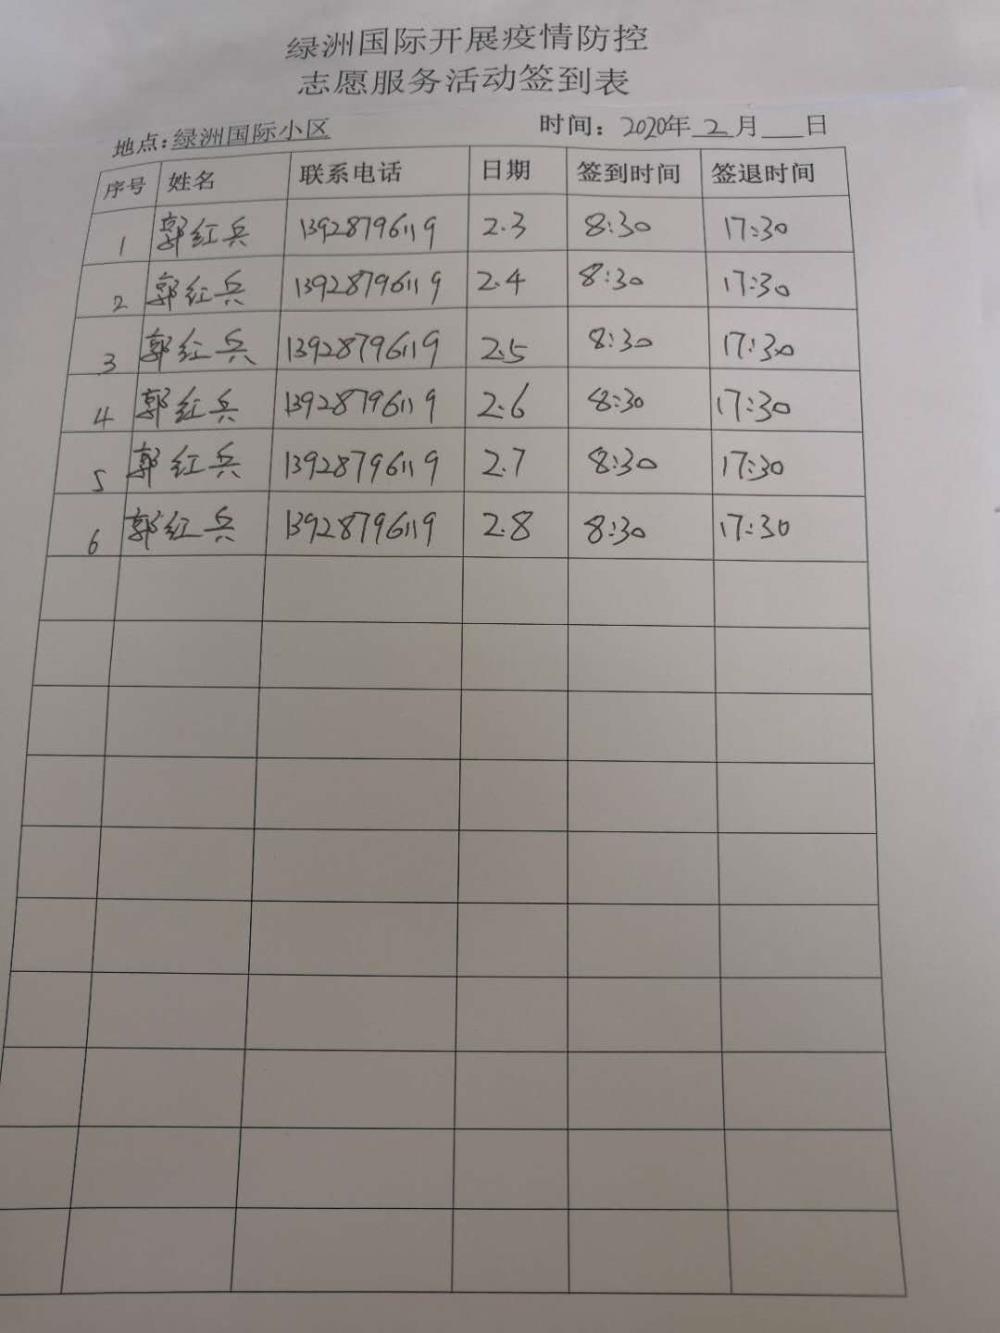 绿洲国际开展疫情防控
志愿服务活动签到表
地点：绿洲国际小区 时间：2020年 2 月 日
序号 姓名 联系电话 日期 签到时间 签退时间
1 郭红兵 13928796119 2.3 8:30 17:30
2 郭红兵 13928796119 2.4 8:30 17:30
3 郭红兵 13928796119 2.5 8:30 17:30
4 郭红兵 13928796119 2.6 8:30 17:30
5 郭红兵 13928796119 2.7 8:30 17:30
6 郭红兵 13928796119 2.8 8:30 17:30